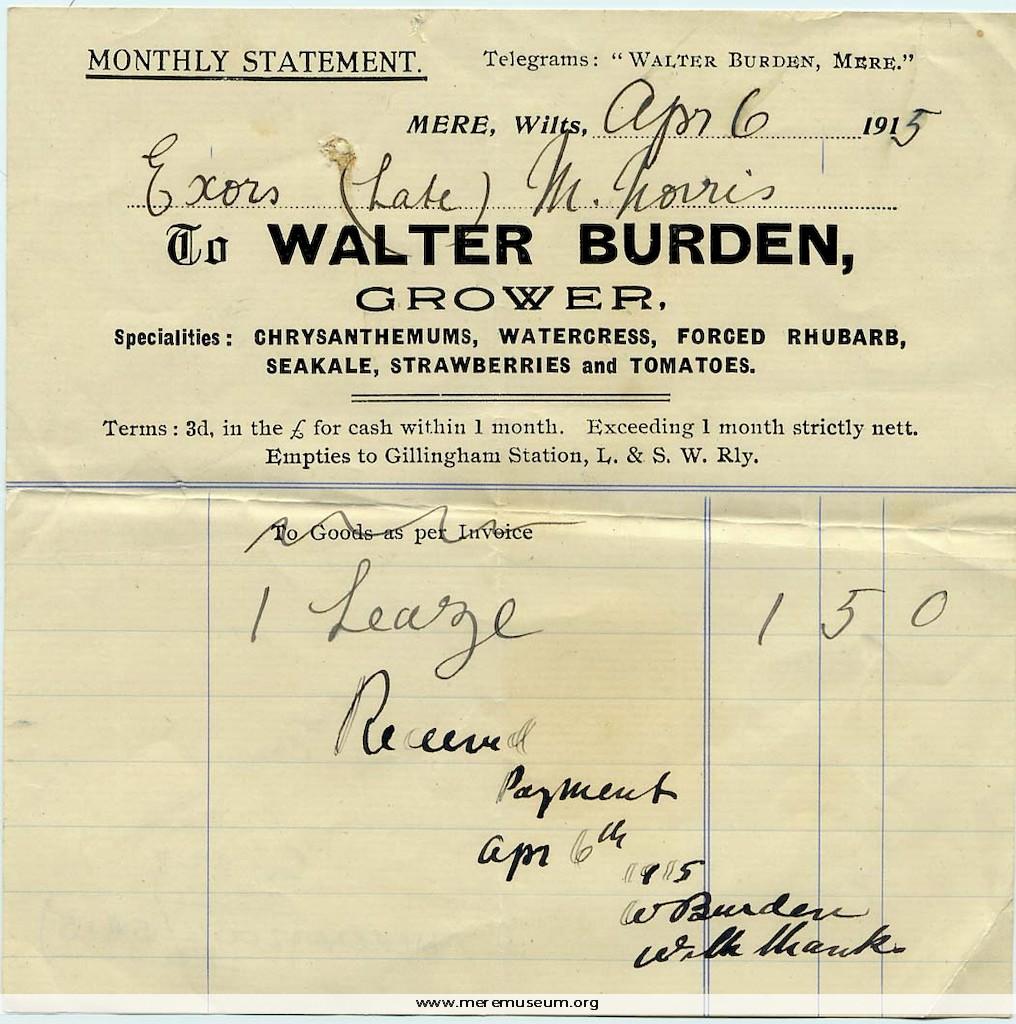 MONTHLY STATEMENT.
Telegrams: "WALTER BURDEN, MERE."
MERE, Wilts, Apr 6 1915
Exors (Late) M. Norris
To WALTER BURDEN,
GROWER,
Specialities: CHRYSANTHEMUMS, WATERCRESS, FORCED RHUBARB,
SEAKALE, STRAWBERRIES and TOMATOES.
Terms: 3d, in the £ for cash within 1 month. Exceeding 1 month strictly nett.
Empties to Gillingham Station, L. & S. W. Rly.
To Goods as per Invoice
1 Leaze 1 5 0
Received
Payment
Apr 6th
1915
W Burden
With thanks
www.meremuseum.org